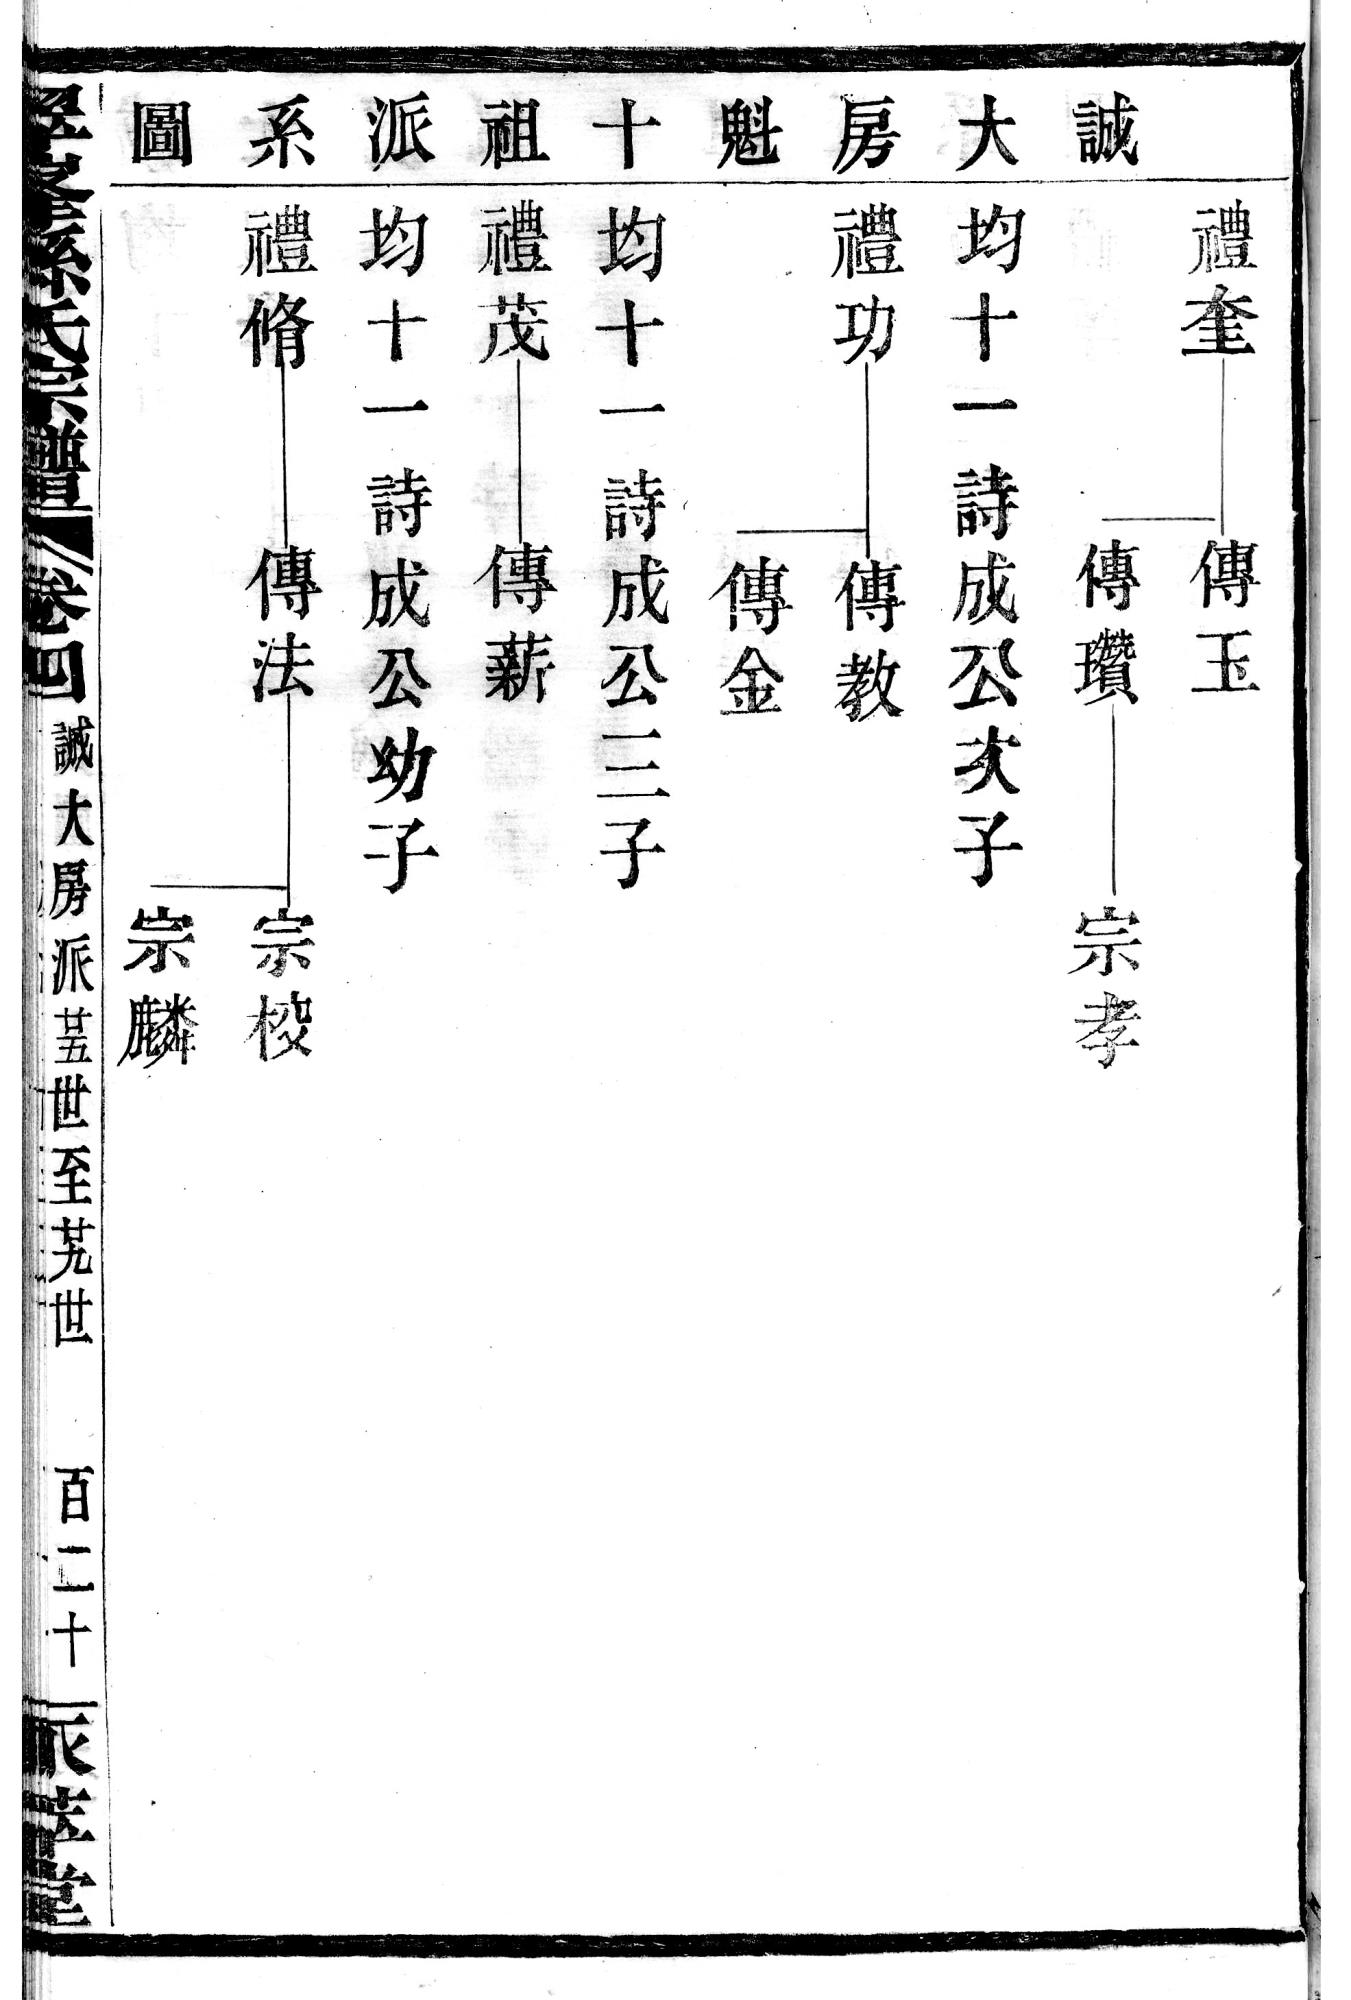 誠大房魁十祖派系圖
禮奎
傳玉
傳瓚
宗孝
均十一詩成公次子
禮功
傳教
傳金
均十一詩成公三子
禮茂
傳薪
均十一詩成公幼子
禮脩
傳法
宗校
宗麟
孫氏宗譜
卷四
誠大房派
廿五世至廿九世
百二十
堂